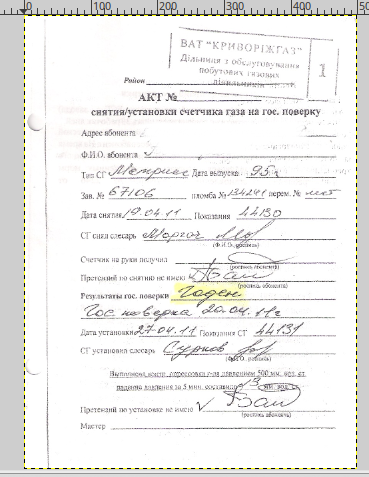 0 100 200 300 400 500
ВАТ "КРИВОРІЖГАЗ"
Дільниця з обслуговування
побутових газових
лічильників
1
Район
АКТ №
снятия/установки счетчика газа на гос. поверку
Адрес абонента
Ф.И.О. абонента
Тип СГ Метрикс Дата выпуска 95г
Зав. № 67106 пломба № 134241 перем. №
Дата снятия 19.04.11 Показания 44130
СГ снял слесарь
(Ф.И.О., роспись)
Счетчик на руки получил
(роспись абонента)
Претензий по снятию не имею
(роспись абонента)
Результаты гос. поверки Годен
Гос поверка 20.04.11г
Дата установки 27.04.11 Показания СГ 44131
СГ установил слесарь Сурков
(Ф.И.О., роспись)
Выполнена контр. опрессовка г-да давлением 500 мм. вод. ст.
падения давления за 5 мин. составило 13 мм. вод. ст.
Претензий по установке не имею
(роспись абонента)
Мастер